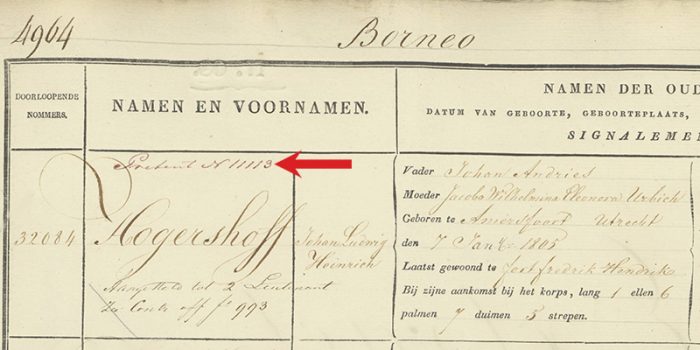 4964
Borneo
DOORLOOPENDE
NOMMERS.
NAMEN EN VOORNAMEN.
NAMEN DER OUD
DATUM VAN GEBOORTE, GEBOORTEPLAATS,
SIGNALEME
Portret N 11113
32084
Hogershoff
Johan Ludwig
Heinrich
Aangesteld tot 2 Lieutenant
Zie Contr off fo 993
Vader Johan Andries
Moeder Jacoba Wilhelmina Eleonora Urbich
Geboren te Amersfoort Utrecht
den 7 Jan 1805
Laatst gewoond te Jost fredrik Hendriks
Bij zijne aankomst bij het korps, lang 1 ellen 6
palmen 7 duimen 5 strepen.